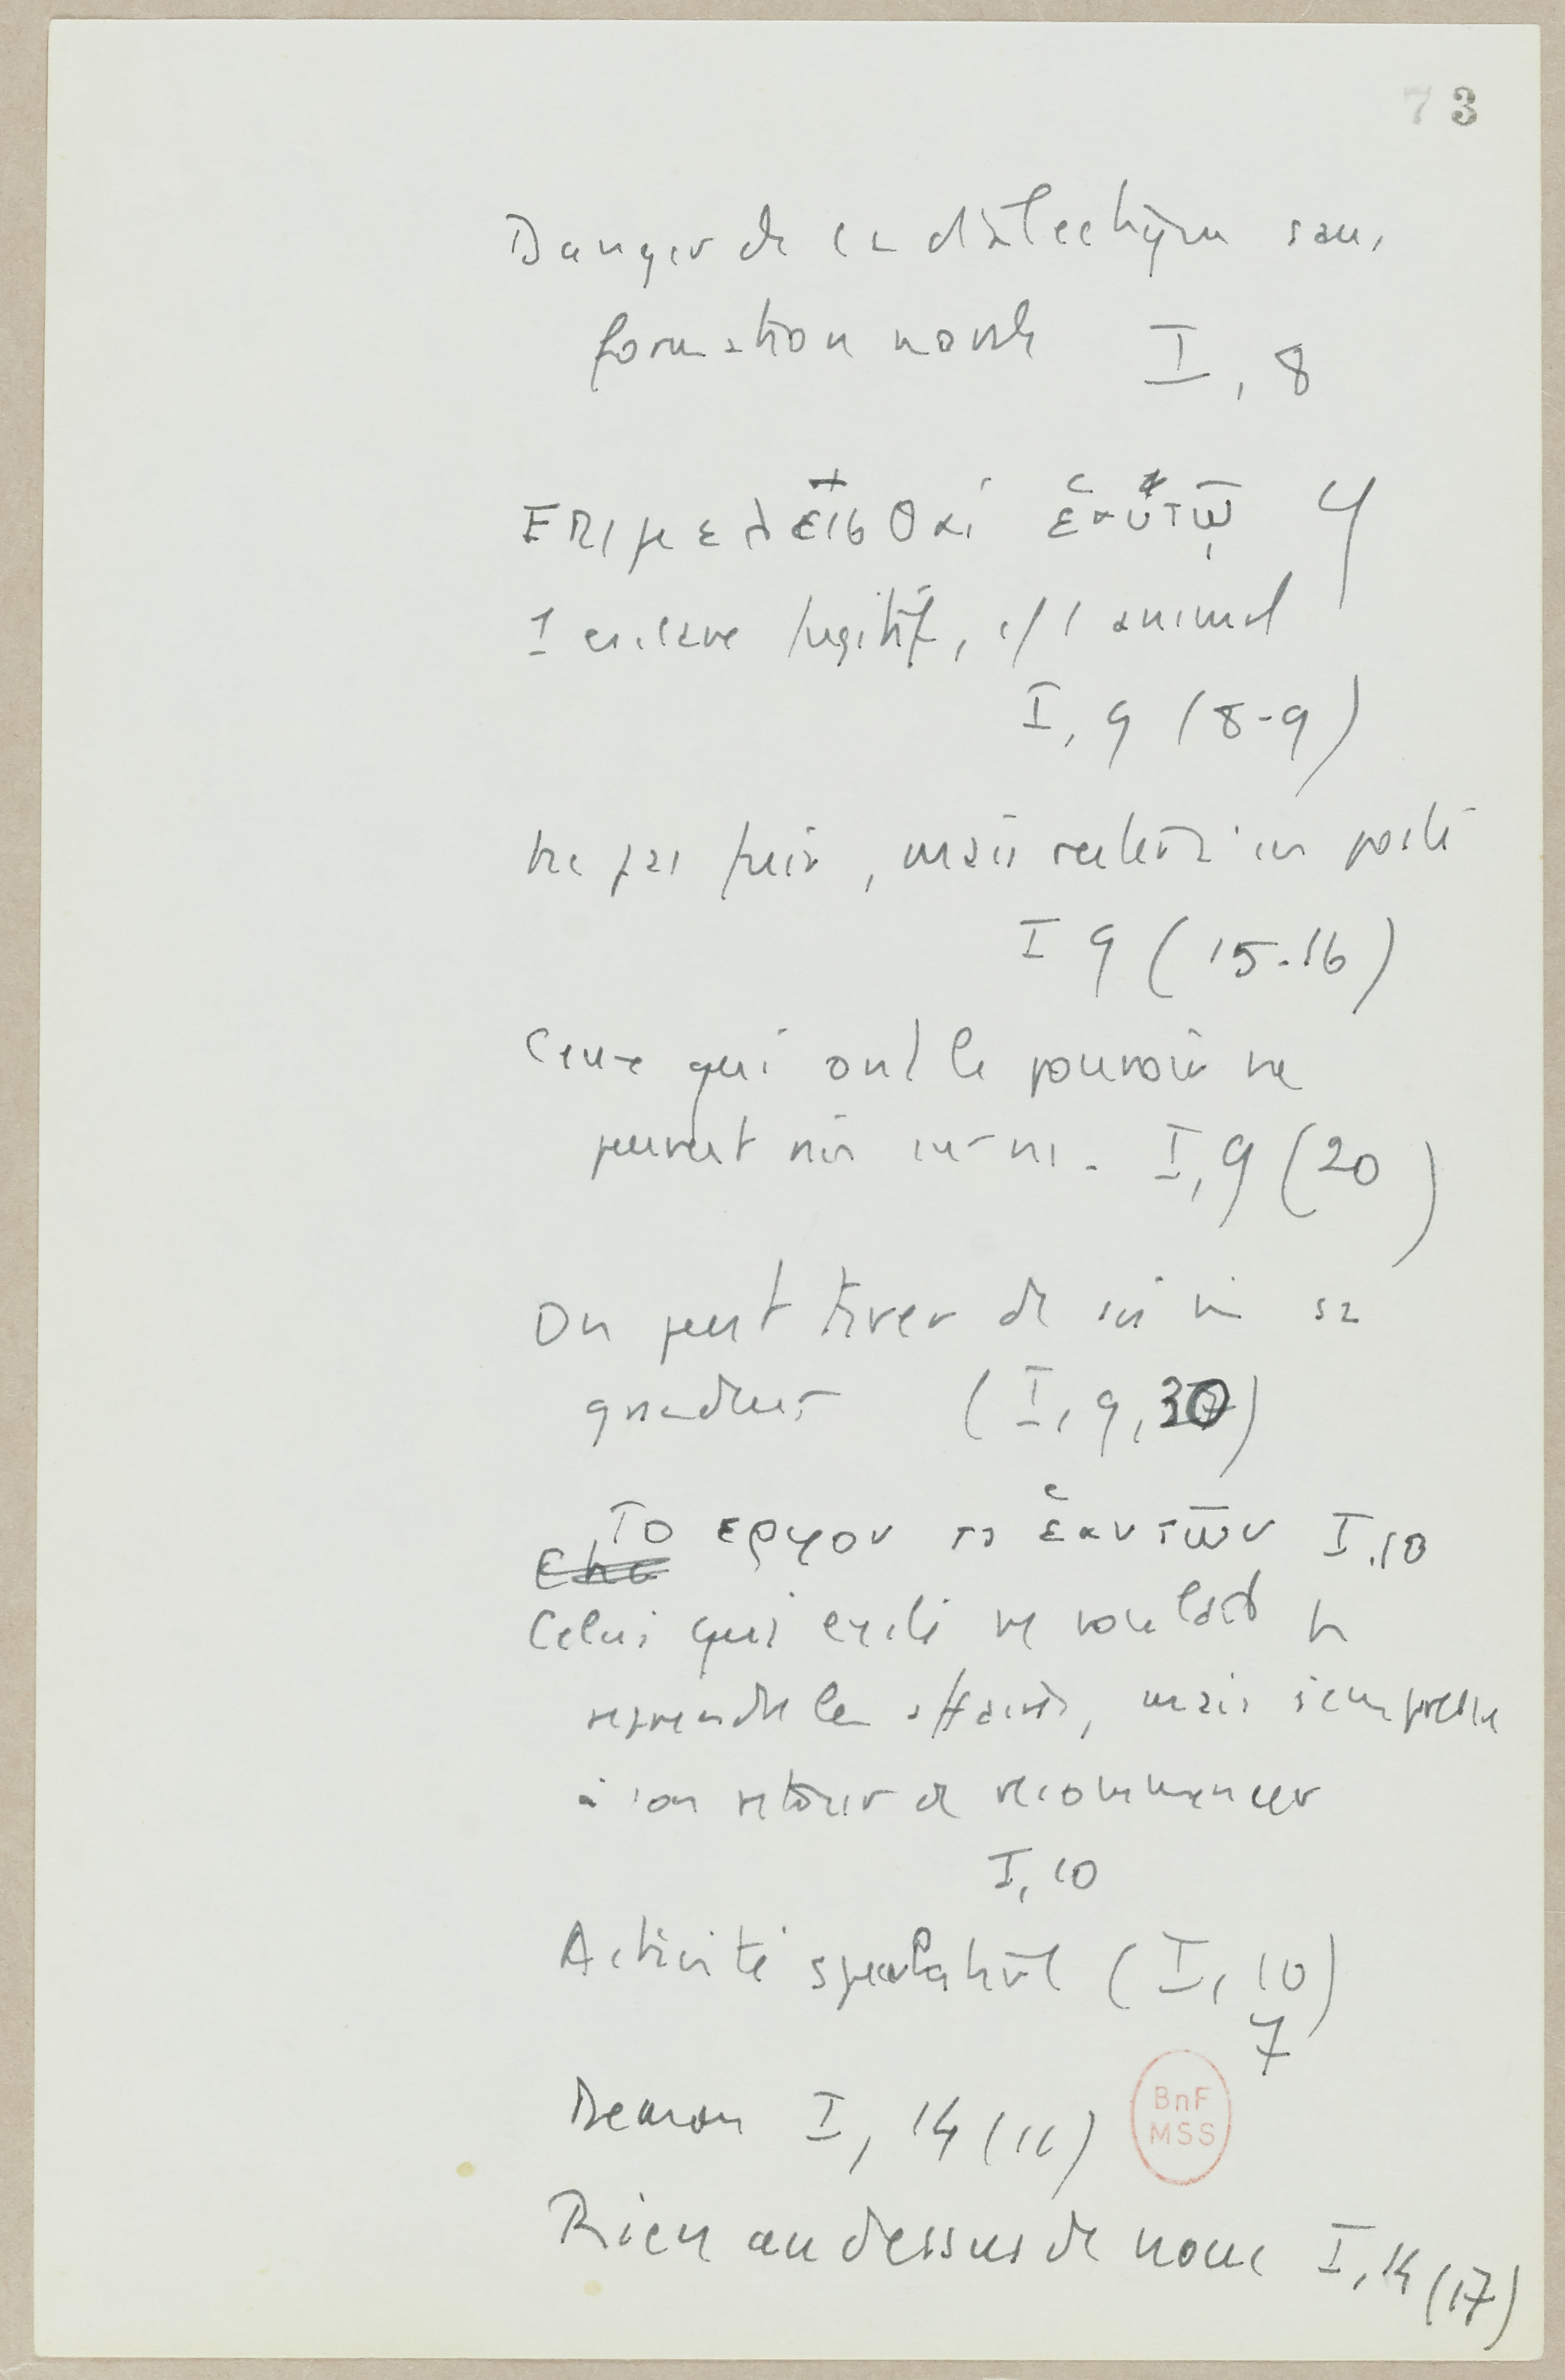 73
Danger de la dialectique sans
formation morale I, 8
Επιμελεισθαι ἑαυτῷ 4
1 esclave fugitif, c/ 1 animal
I, 9 (8-9)
Ne pas fuir, mais rester à son poste
I 9 (15-16)
Ceux qui ont le pouvoir ne
peuvent rien sur ns. I, 9 (20
)
On peut tirer de soi m sa
grandeur (I, 9, 30)
Το εργον το ἑαυτων I.10
Celui qui exilé ne voulait
reprendre les affaires, mais s'empresse
à son retour de recommencer
I, 10
Activité spéculative (I, 10)
7
Demon I, 14 (11)
BnF
MSS
Rien au dessus de nous I, 14 (17)